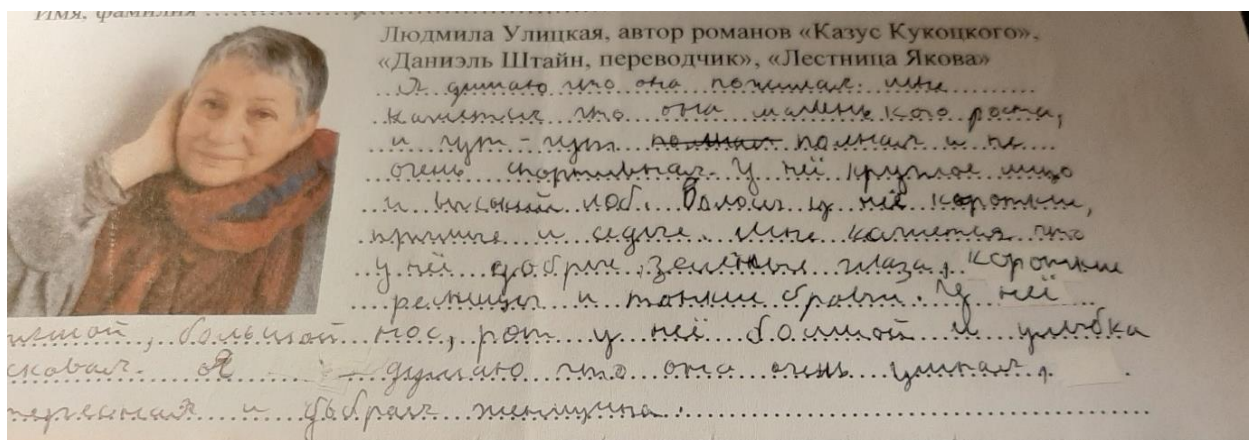 Имя, фамилия
Людмила Улицкая, автор романов «Казус Кукоцкого»,
«Даниэль Штайн, переводчик», «Лестница Якова»
Я думаю что она пожилая. Мне
кажется что она маленького роста,
и чут-чут полная полная и не
очень спортивная. У неё круглое лицо
и высокий лоб. Волосы у неё короткие,
прямые и седые. Мне кажется что
у неё добрые, зелёные глаза, короткие
ресницы и тонкие брови. У неё
большой нос, рот у неё большой и улыбка
сковая. Я думаю что она очень умная,
и добрая женщина.